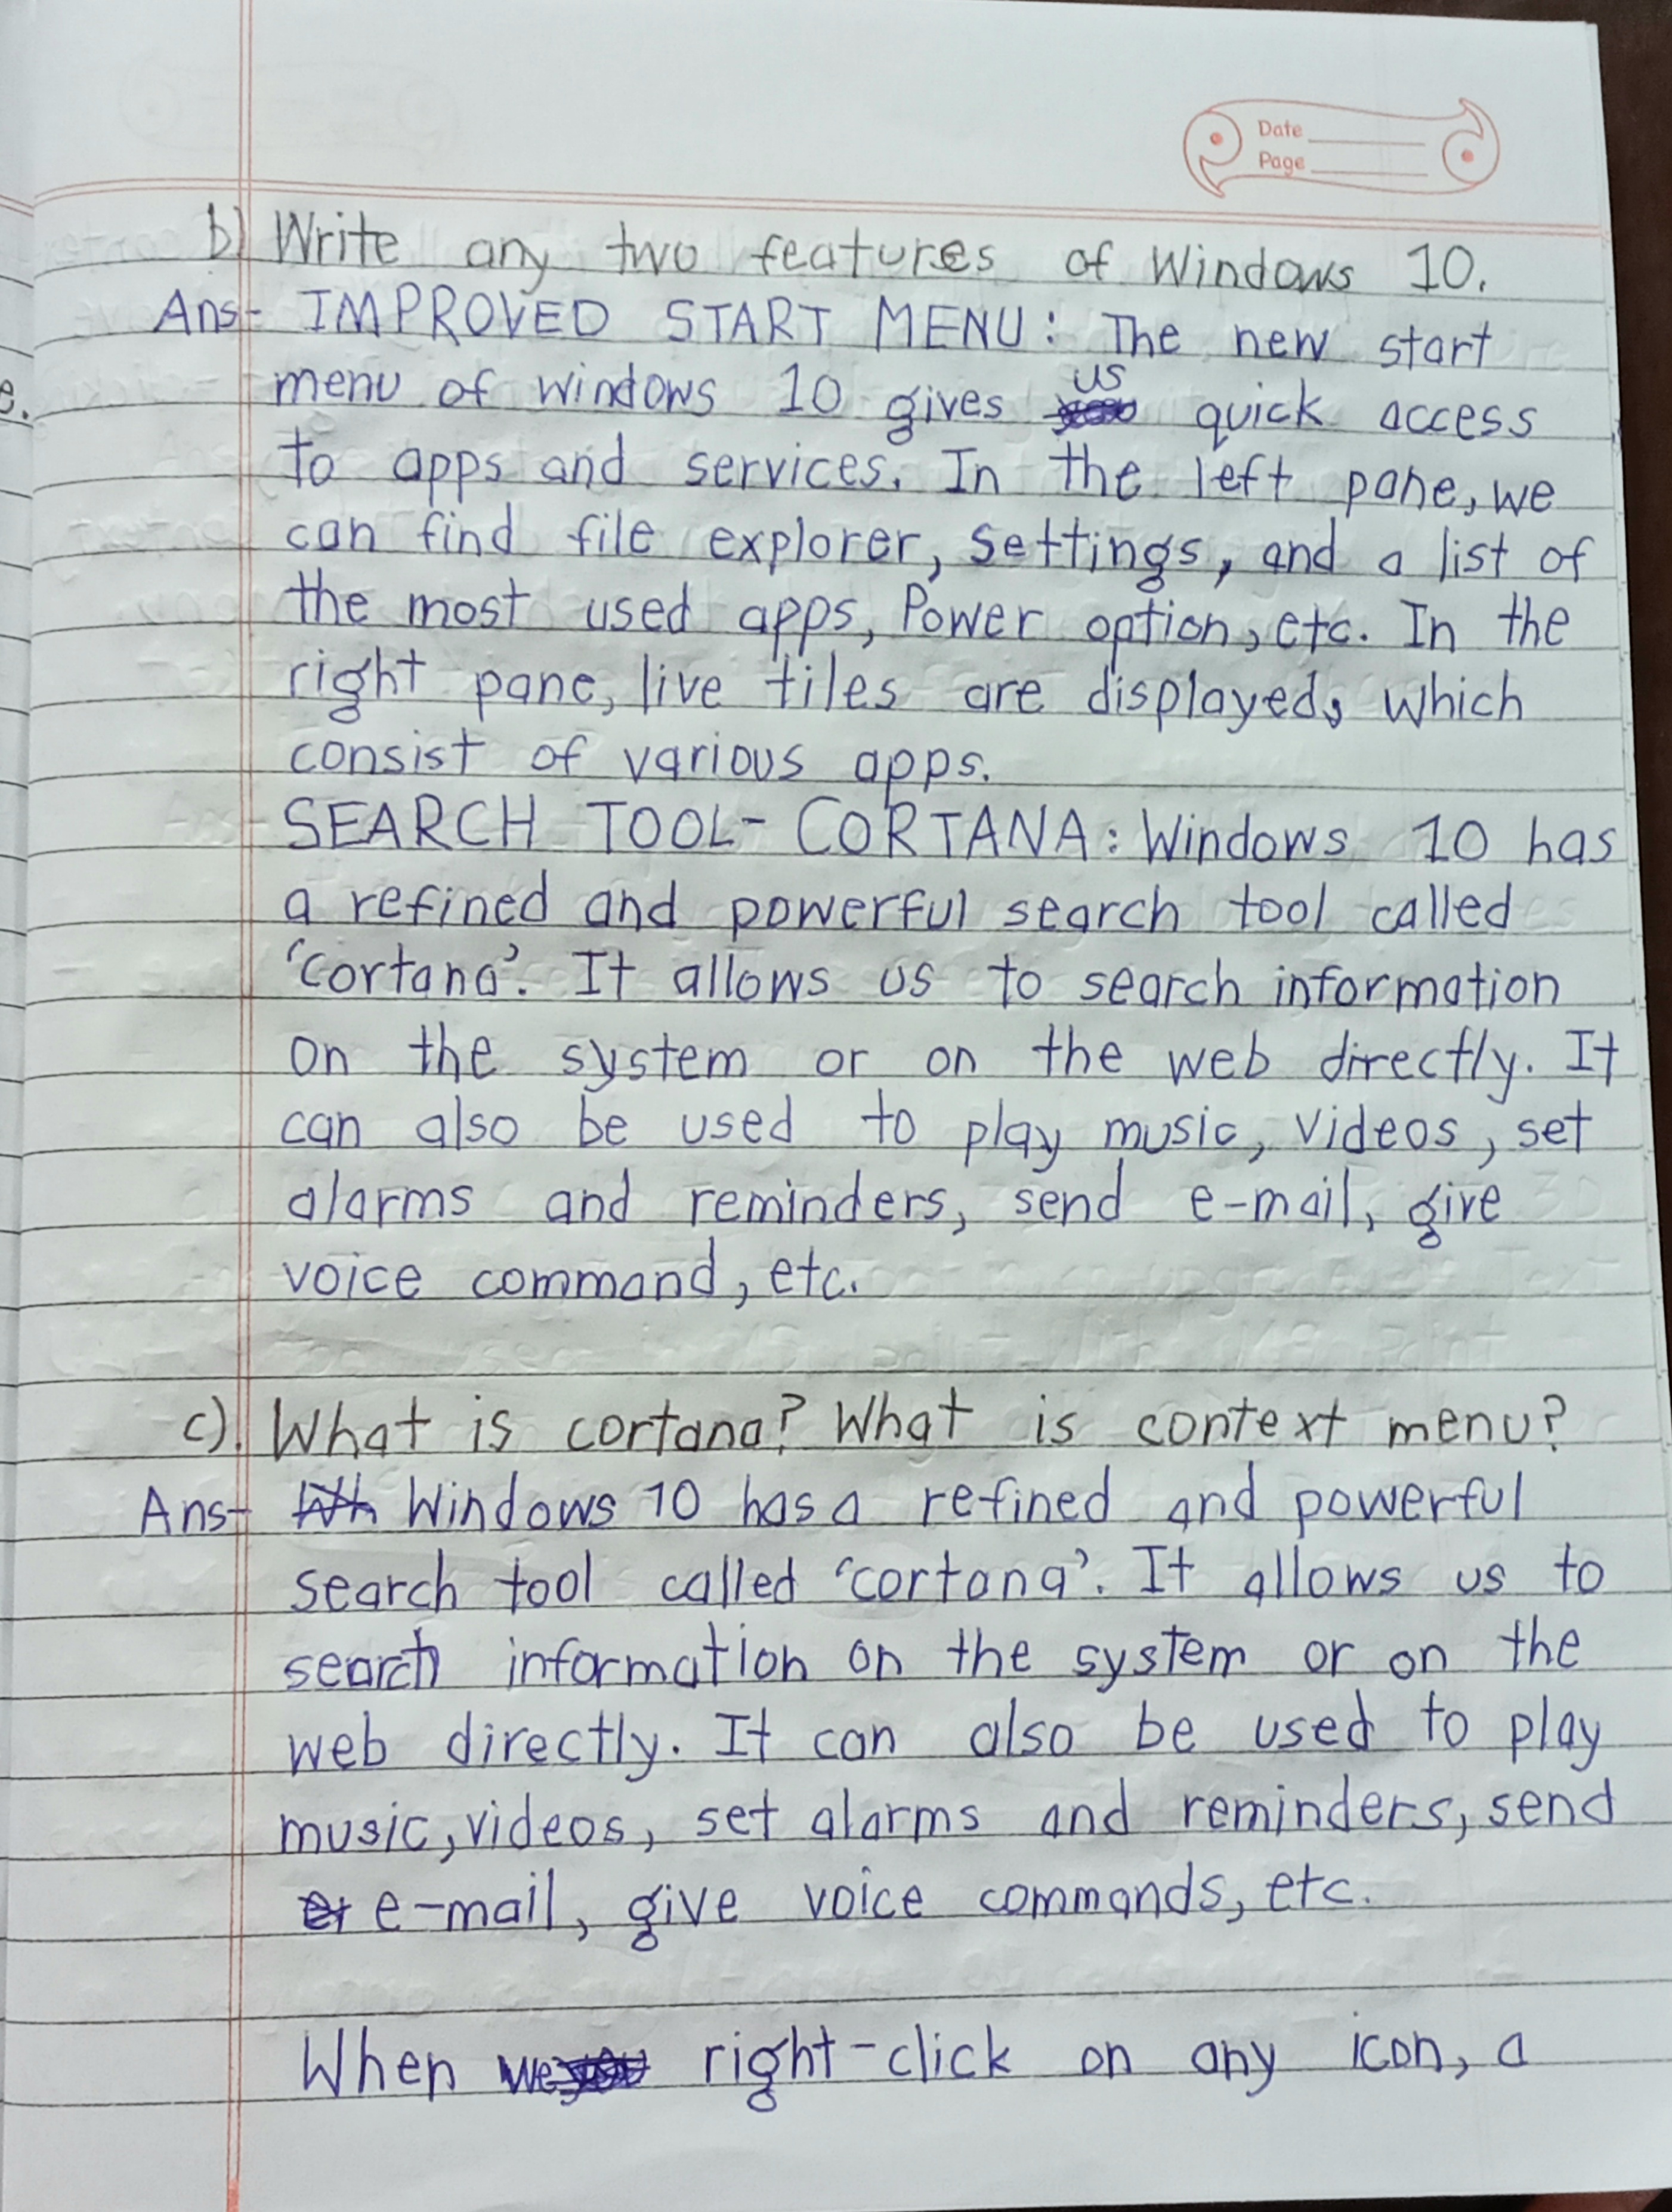 Date
Page
b) Write any two features of Windows 10.
Ans- IMPROVED START MENU: The new start
menu of windows 10 gives us quick access
to apps and services. In the left pane, we
can find file explorer, settings, and a list of
the most used apps, Power option, etc. In the
right pane, live tiles are displayed, which
consist of various apps.
SEARCH TOOL- CORTANA: Windows 10 has
a refined and powerful search tool called
'cortana'. It allows us to search information
on the system or on the web directly. It
can also be used to play music, videos, set
alarms and reminders, send e-mail, give
voice command, etc.
c). What is cortana? What is context menu?
Ans- Windows 10 has a refined and powerful
search tool called 'cortana'. It allows us to
search information on the system or on the
web directly. It can also be used to play
music, videos, set alarms and reminders, send
e-mail, give voice commands, etc.
When we right-click on any icon, a
e.